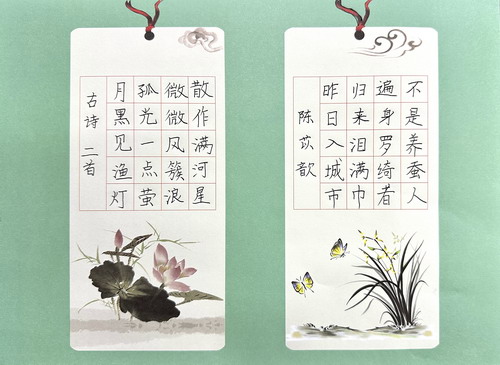 古诗 二首
月黑见渔灯
孤光一点萤
微微风簇浪
散作满河星
陈苡歆
昨日入城市
归来泪满巾
遍身罗绮者
不是养蚕人